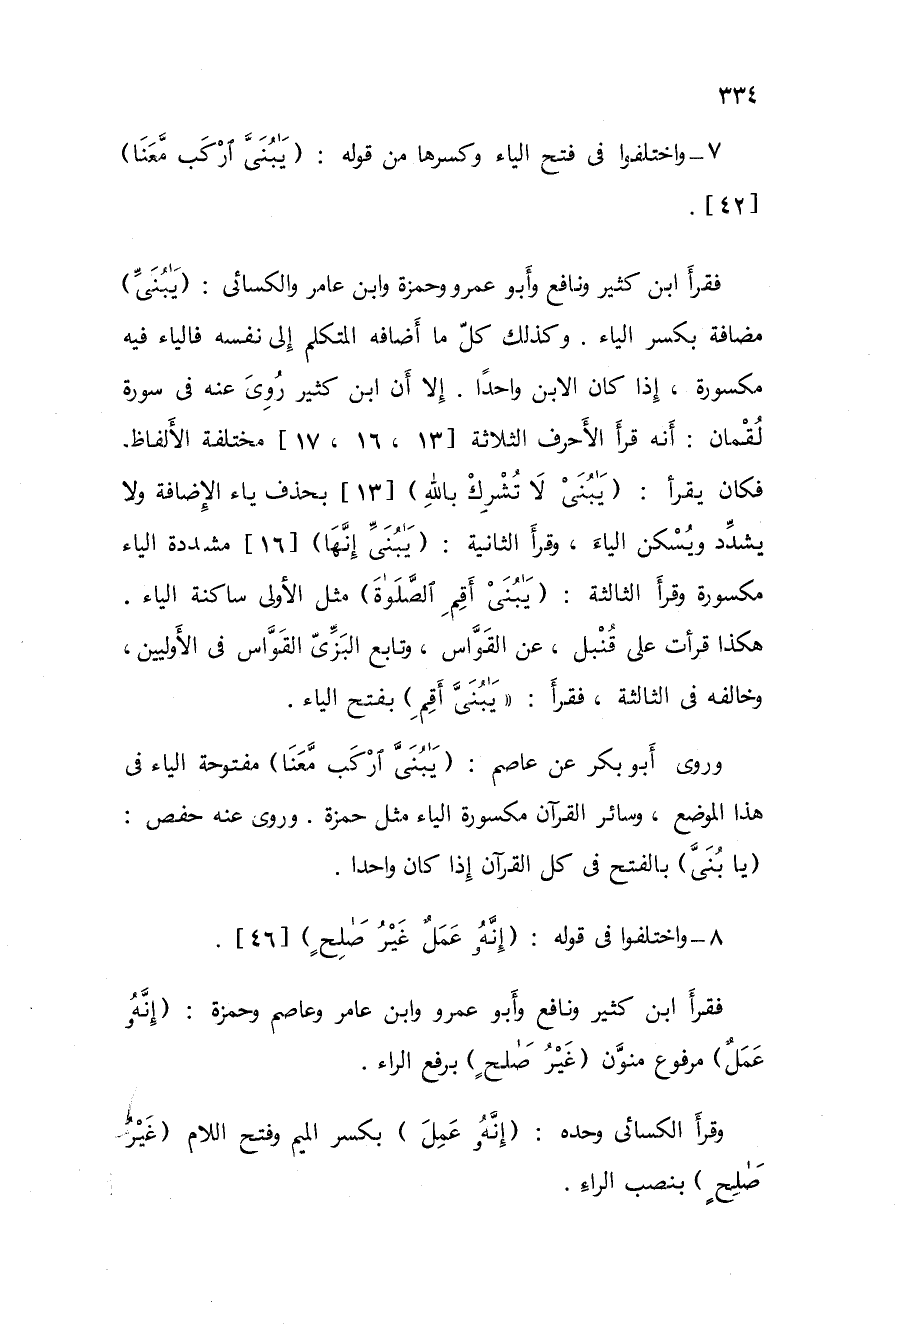 ٣٣٤
٧ــ واختلفوا فى فتح الياء وكسرها من قوله : ( يَـٰبُنَىَّ ٱرْكَب مَّعَنَا )
[ ٤٢ ] .
فقرأَ ابن كثير ونافع وأَبو عمرو وحمزة وابن عامر والكسائى : ( يَـٰبُنَىِّ )
مضافة بكسر الياء . وكذلك كلّ ما أَضافه المتكلم إِلى نفسه فالياء فيه
مكسورة ، إِذا كان الابن واحدًا . إِلا أَن ابن كثير رُوِىَ عنه فى سورة
لُقْمان : أَنه قرأَ الأَحرف الثلاثة [ ١٣ ، ١٦ ، ١٧ ] مختلفة الأَلفاظ.
فكان يقرأ : ( يَـٰبُنَىْ لَا تُشْرِكْ بِاللهِ ) [ ١٣ ] بحذف ياء الإِضافة ولا
يشدِّد ويُسْكن الياءَ ، وقرأَ الثانية : ( يَـٰبُنَىِّ إِنَّهَا ) [ ١٦ ] مشددة الياء
مكسورة وقرأَ الثالثة : ( يَـٰبُنَىْ أَقِمِ ٱلصَّلَوٰةَ ) مثل الأُولى ساكنة الياء .
هكذا قرأت على قُنْبل ، عن القَوَّاس ، وتابع البَزِّىّ القَوَّاس فى الأُوليين ،
وخالفه فى الثالثة ، فقرأَ : « يَـٰبُنَىَّ أَقِمِ ) بفتح الياء .
وروى أَبو بكر عن عاصم : ( يَـٰبُنَىَّ ٱرْكَب مَّعَنَا ) مفتوحة الياء فى
هذا الموضع ، وسائر القرآن مكسورة الياء مثل حمزة . وروى عنه حفص :
( يا بُنَىَّ ) بالفتح فى كل القرآن إِذا كان واحدا .
٨ــ واختلفوا فى قوله : ( إِنَّهُۥ عَمَلٌ غَيْرُ صَـٰلِحٍ ) [ ٤٦ ] .
فقرأَ ابن كثير ونافع وأَبو عمرو وابن عامر وعاصم وحمزة : ( إِنَّهُۥ
عَمَلٌ ) مرفوع منوَّن ( غَيْرُ صَـٰلحٍ ) برفع الراء .
وقرأَ الكسائى وحده : ( إِنَّهُۥ عَمِلَ ) بكسر الميم وفتح اللام ( غَيْرَ
صَـٰلِحٍ ) بنصب الراءِ .